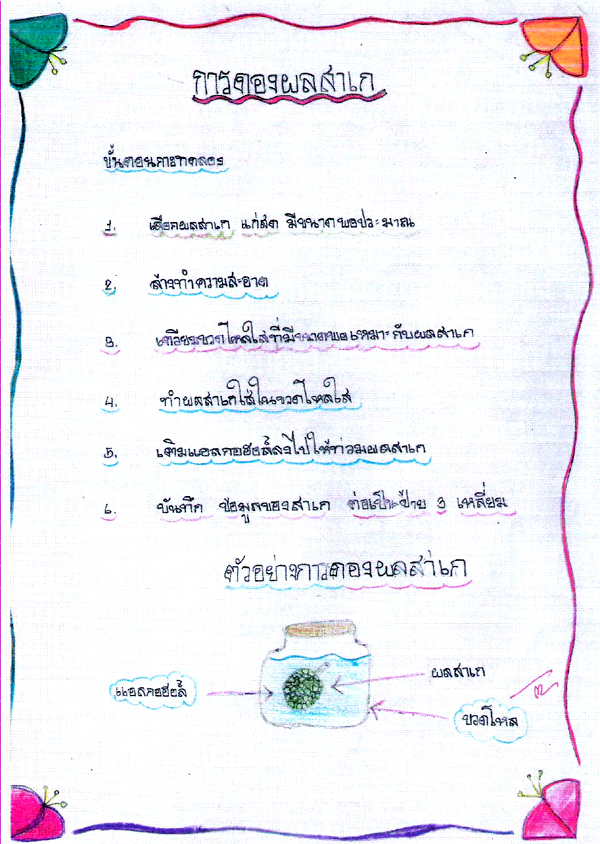 การดองผลสาเก
ขั้นตอนการทดลอง
1. เลือกผลสาเก แก่สด มีขนาดพอประมาณ
2. ล้างทำความสะอาด
3. เตรียมขวดโหลใสที่มีขนาดพอเหมาะกับผลสาเก
4. นำผลสาเกใส่ในขวดโหลใส
5. เติมแอลกอฮอล์ลงไปให้ท่วมผลสาเก
6. บันทึก ข้อมูลของสาเก ป้าย 3 เหลี่ยม
ตัวอย่างการดองผลสาเก
แอลกอฮอล์
ผลสาเก
ขวดโหล